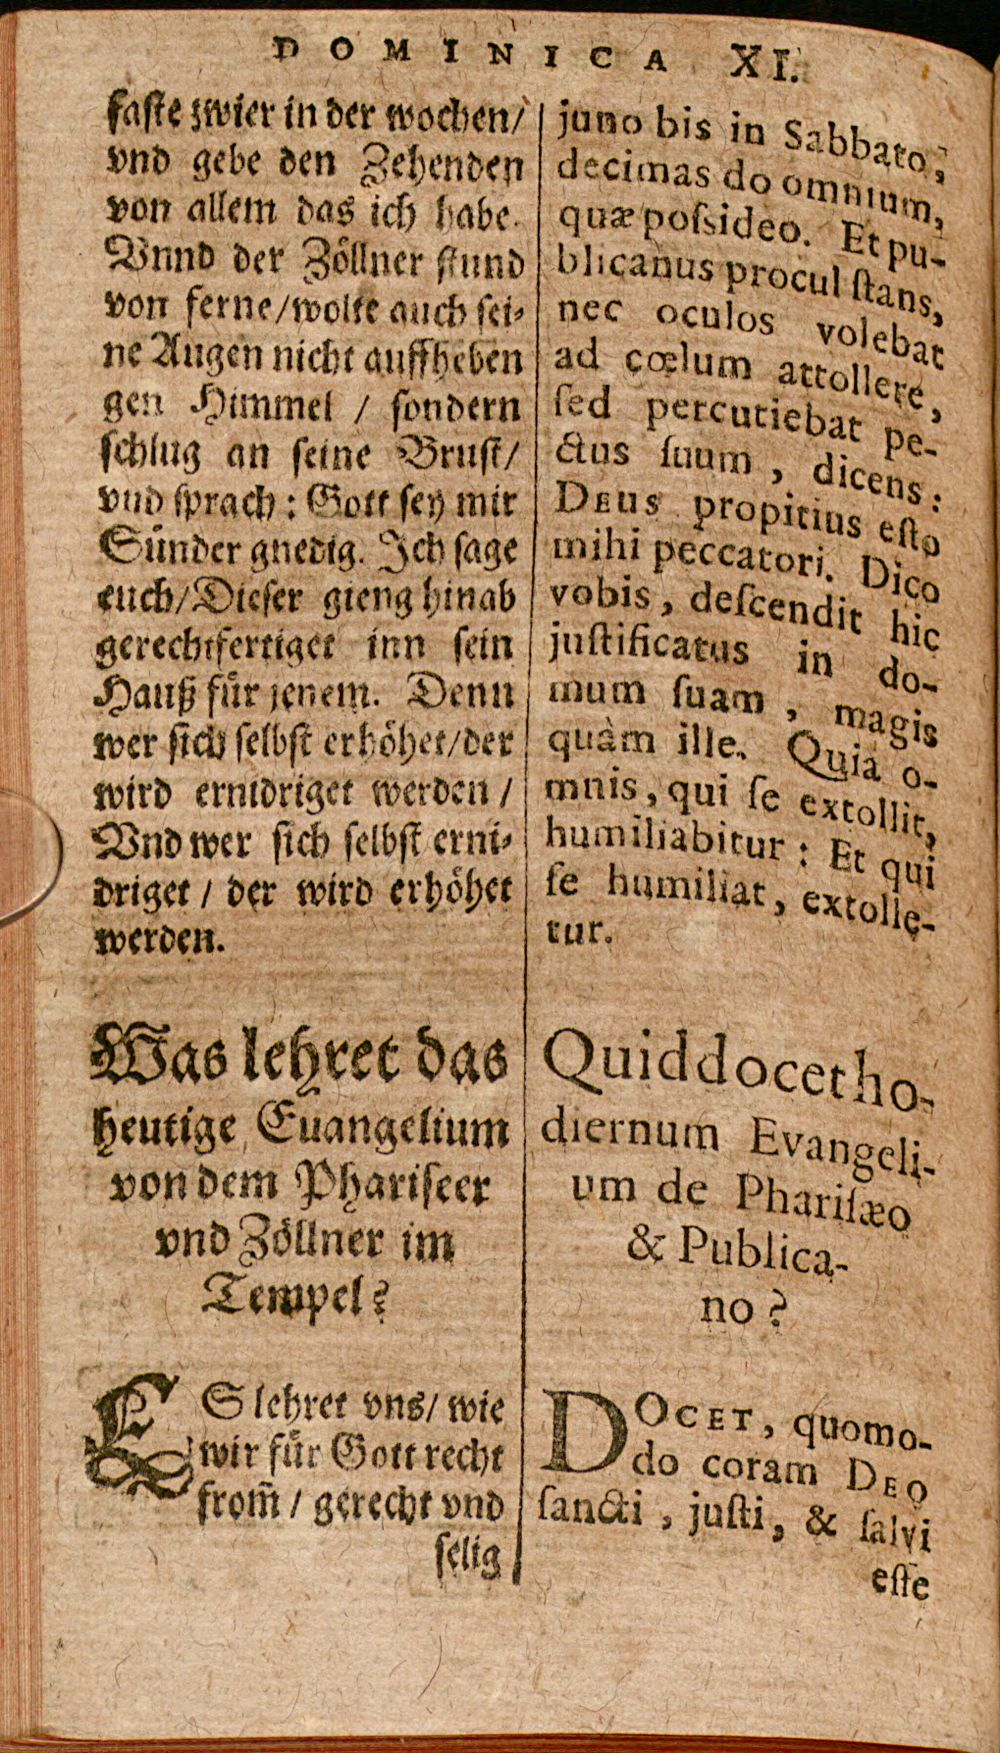 DOMINICA XI.
faſte zwier in der wochen/
vnd gebe den Zehenden
von allem das ich habe.
Vnnd der Zöllner ſtund
von ferne/wolte auch ſei⸗
ne Augen nicht auffheben
gen Himmel / ſondern
ſchlug an ſeine Bruſt/
vnd ſprach: Gott ſey mir
Sünder gnedig. Ich ſage
euch/Dieſer gieng hinab
gerechtfertiget inn ſein
Hauß für jenem. Denn
wer ſich ſelbſt erhöhet/der
wird ernidriget werden /
Vnd wer ſich ſelbſt erni⸗
driget / der wird erhöhet
werden.
Was lehret das
heutige Euangelium
von dem Phariſeer
vnd Zöllner im
Tempel?
ES lehret vns/ wie
wir für Gott recht
from̃ / gerecht vnd
ſelig
juno bis in Sabbato,
decimas do omnium,
quæ poſsideo. Et pu-
blicanus procul ſtans,
nec oculos volebat
ad cœlum attollere,
ſed percutiebat pe-
ctus ſuum, dicens:
DEUS propitius eſto
mihi peccatori. Dico
vobis, deſcendit hic
juſtificatus in do-
mum ſuam, magis
quàm ille. Quia o-
mnis, qui ſe extollit,
humiliabitur: Et qui
ſe humiliat, extolle-
tur.
Quid docet ho-
diernum Evangeli-
um de Phariſæo
& Publica-
no?
DOCET, quomo-
do coram DEO
ſancti, juſti, & ſalvi
eſſe